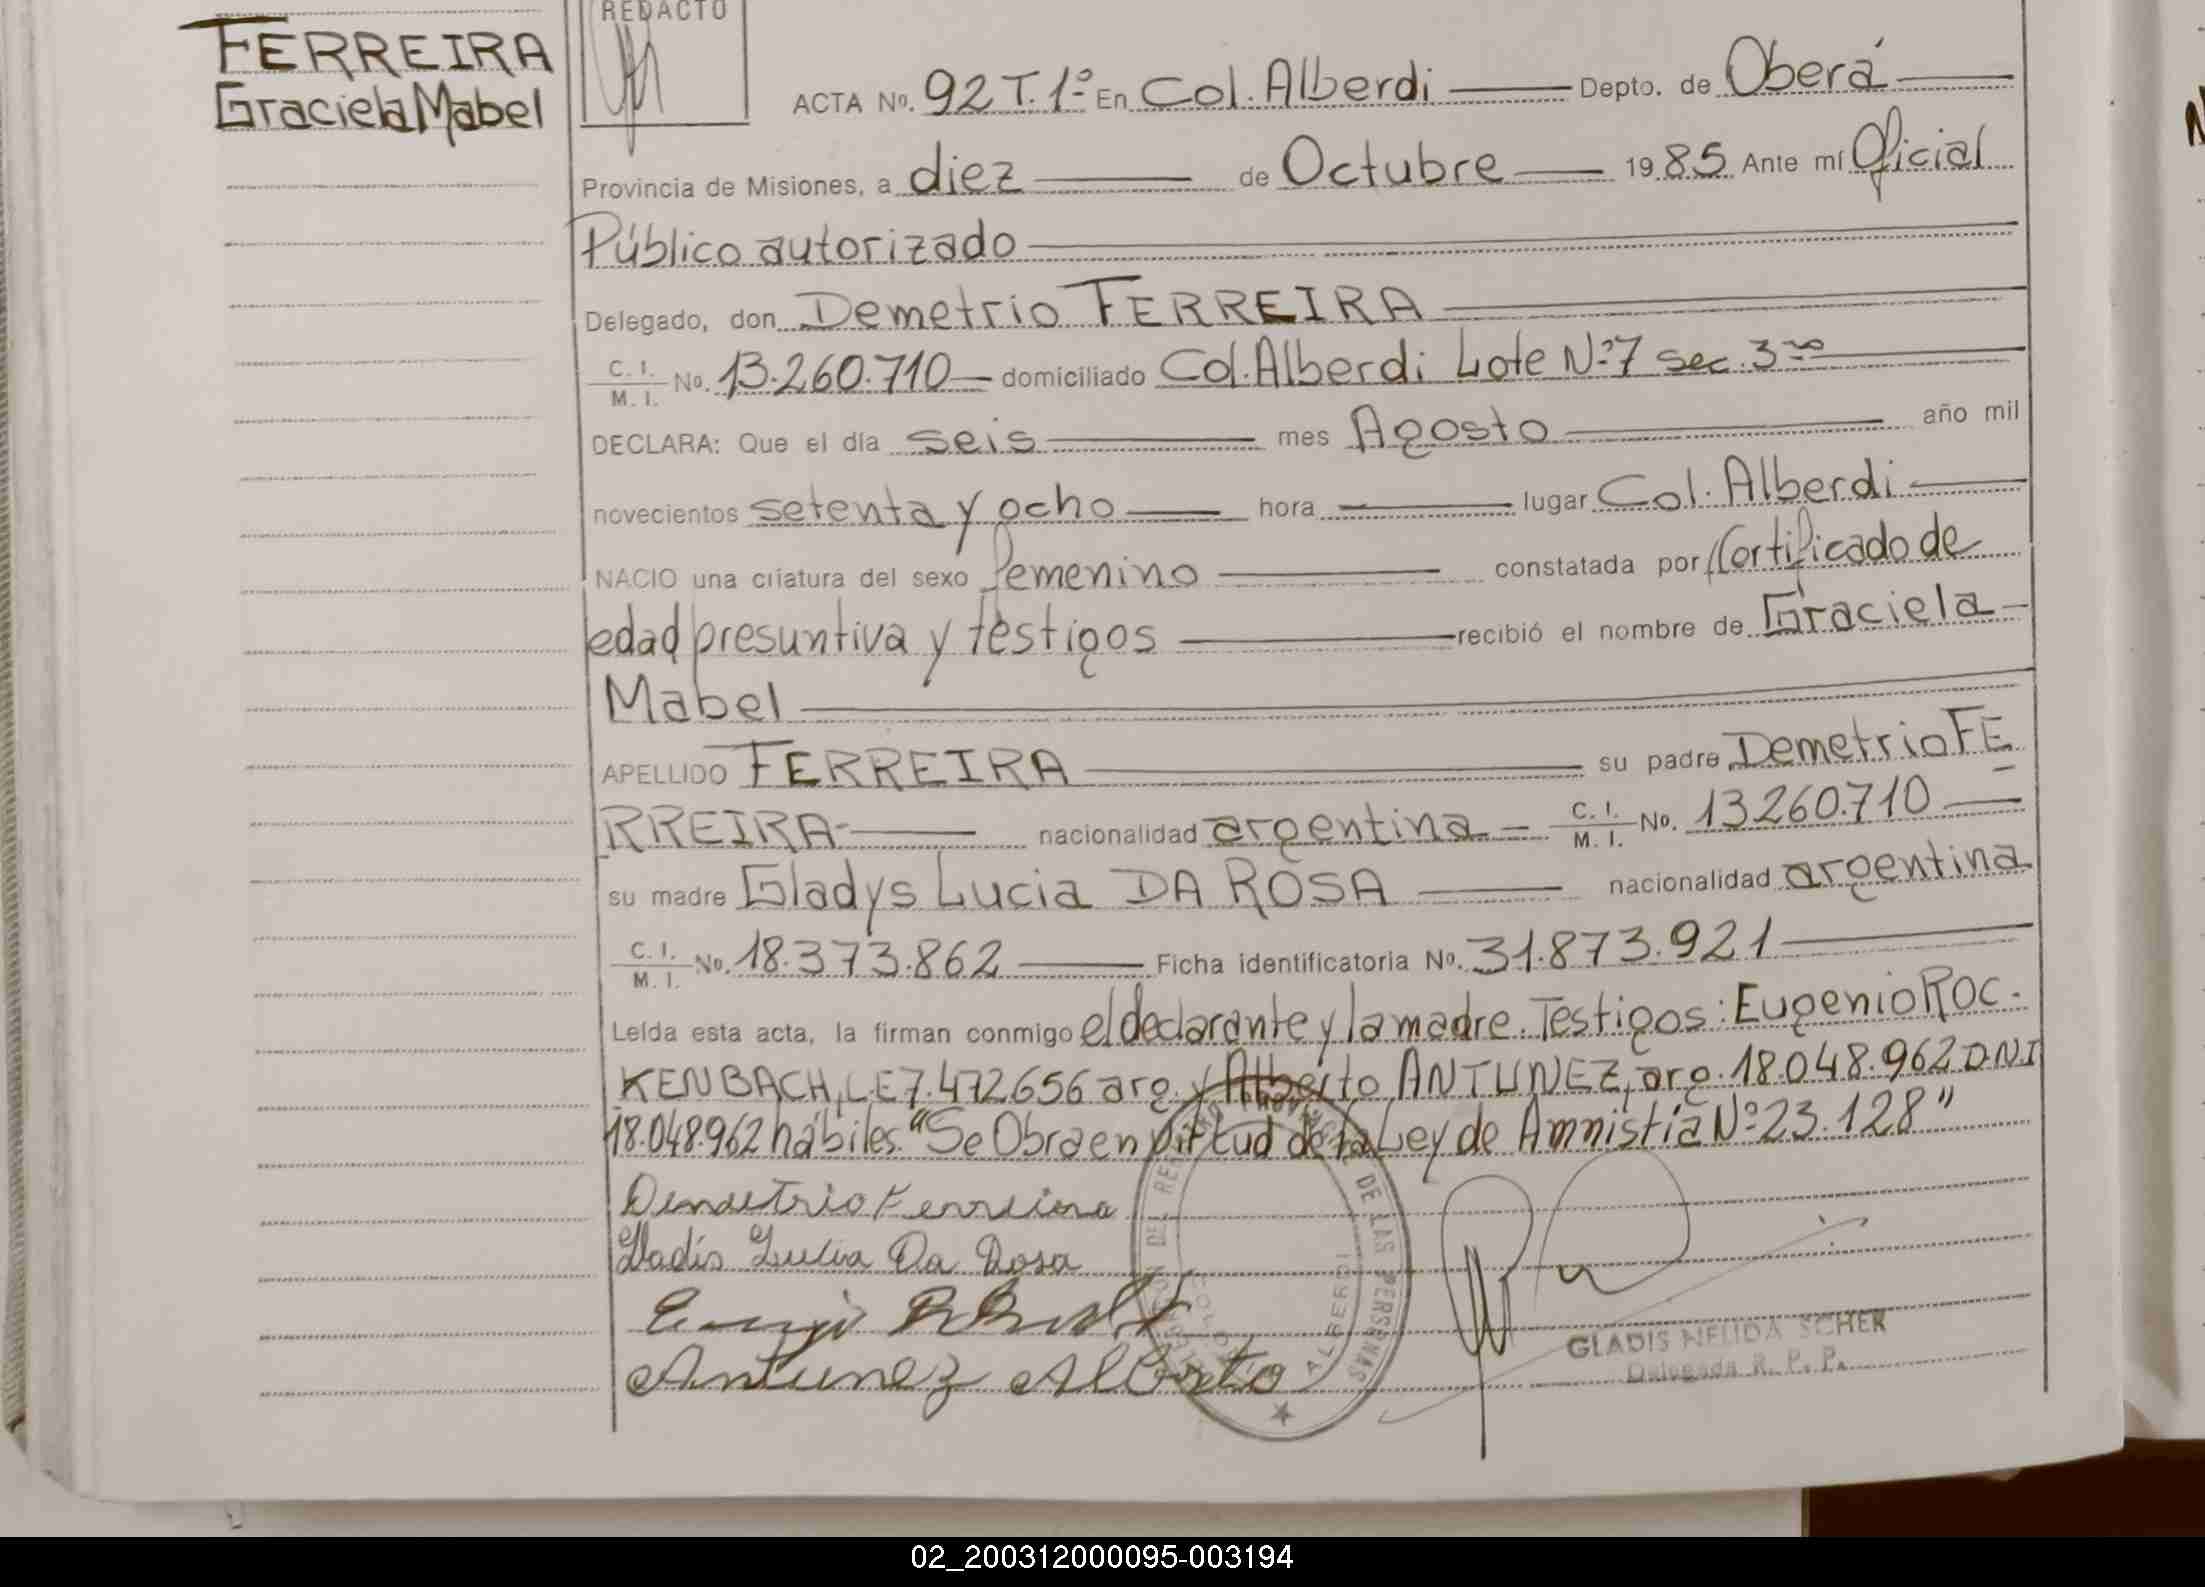 FERREIRA
Graciela Mabel
REDACTO
ACTA No. 92 T. 1º En Col. Alberdi Depto. de Oberá
Provincia de Misiones, a diez de Octubre 1985 Ante mí Oficial
Público autorizado
Delegado, don Demetrio FERREIRA
C. I. / M. I. No. 13.260.710 domiciliado Col. Alberdi Lote Nº 7 sec. 3ra
DECLARA: Que el día seis mes Agosto año mil
novecientos setenta y ocho hora lugar Col. Alberdi
NACIO una criatura del sexo femenino constatada por Certificado de
edad presuntiva y testigos recibió el nombre de Graciela
Mabel
APELLIDO FERREIRA su padre Demetrio FE
RREIRA nacionalidad argentina C. I. / M. I. No. 13260.710
su madre Gladys Lucia DA ROSA nacionalidad argentina
C. I. / M. I. No. 18.373.862 Ficha identificatoria No. 31.873.921
Leída esta acta, la firman conmigo el declarante y la madre. Testigos: Eugenio ROC-
KENBACH, L.E 7.472.656 arg. y Alberto ANTUNEZ, arg. 18.048.962 D.N.I
18.048.962 hábiles. "Se Obra en virtud de la Ley de Amnistía Nº 23.128"
Demetrio Ferreira
Gladis Lucia Da Rosa
Antunez Alberto
DE LAS PERSONAS
ALBERDI
GLADIS NELIDA SCHER
Delegada R. P. P.
02_200312000095-003194